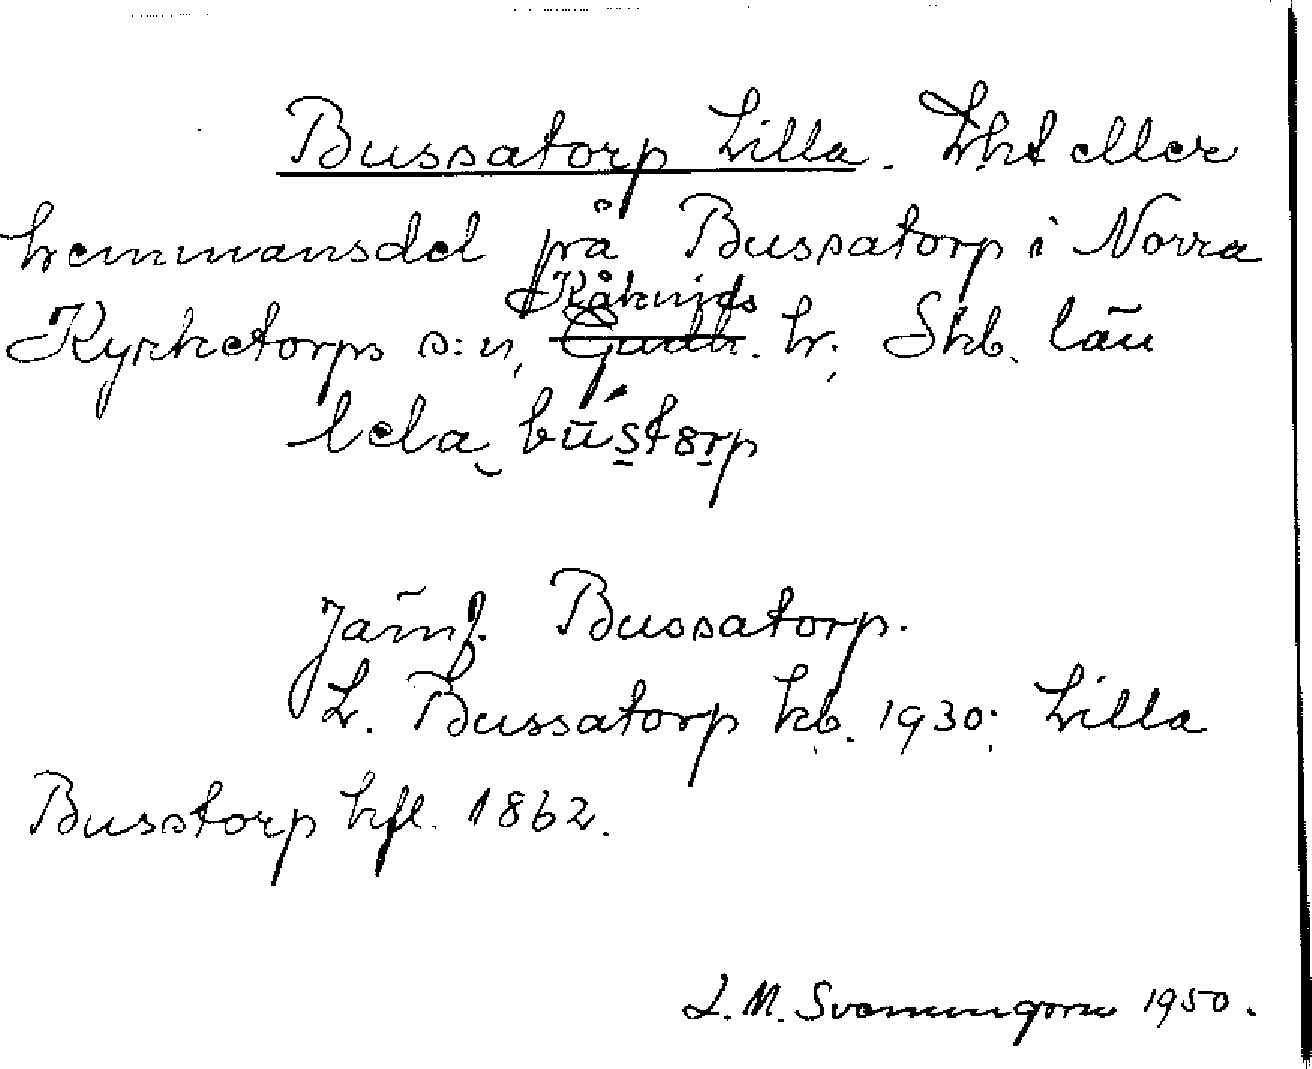 Bussatorp Lilla. Lht eller
hemmansdel på Bussatorp i Norra
Kåkinds
Kyrketorps s:n, Gudh. hr, Skb. län
lela bústorp
Jämf. Bussatorp.
L. Bussatorp kb. 1930; Lilla
Busstorp hfl. 1862.
L. M. Svenungsson 1950.